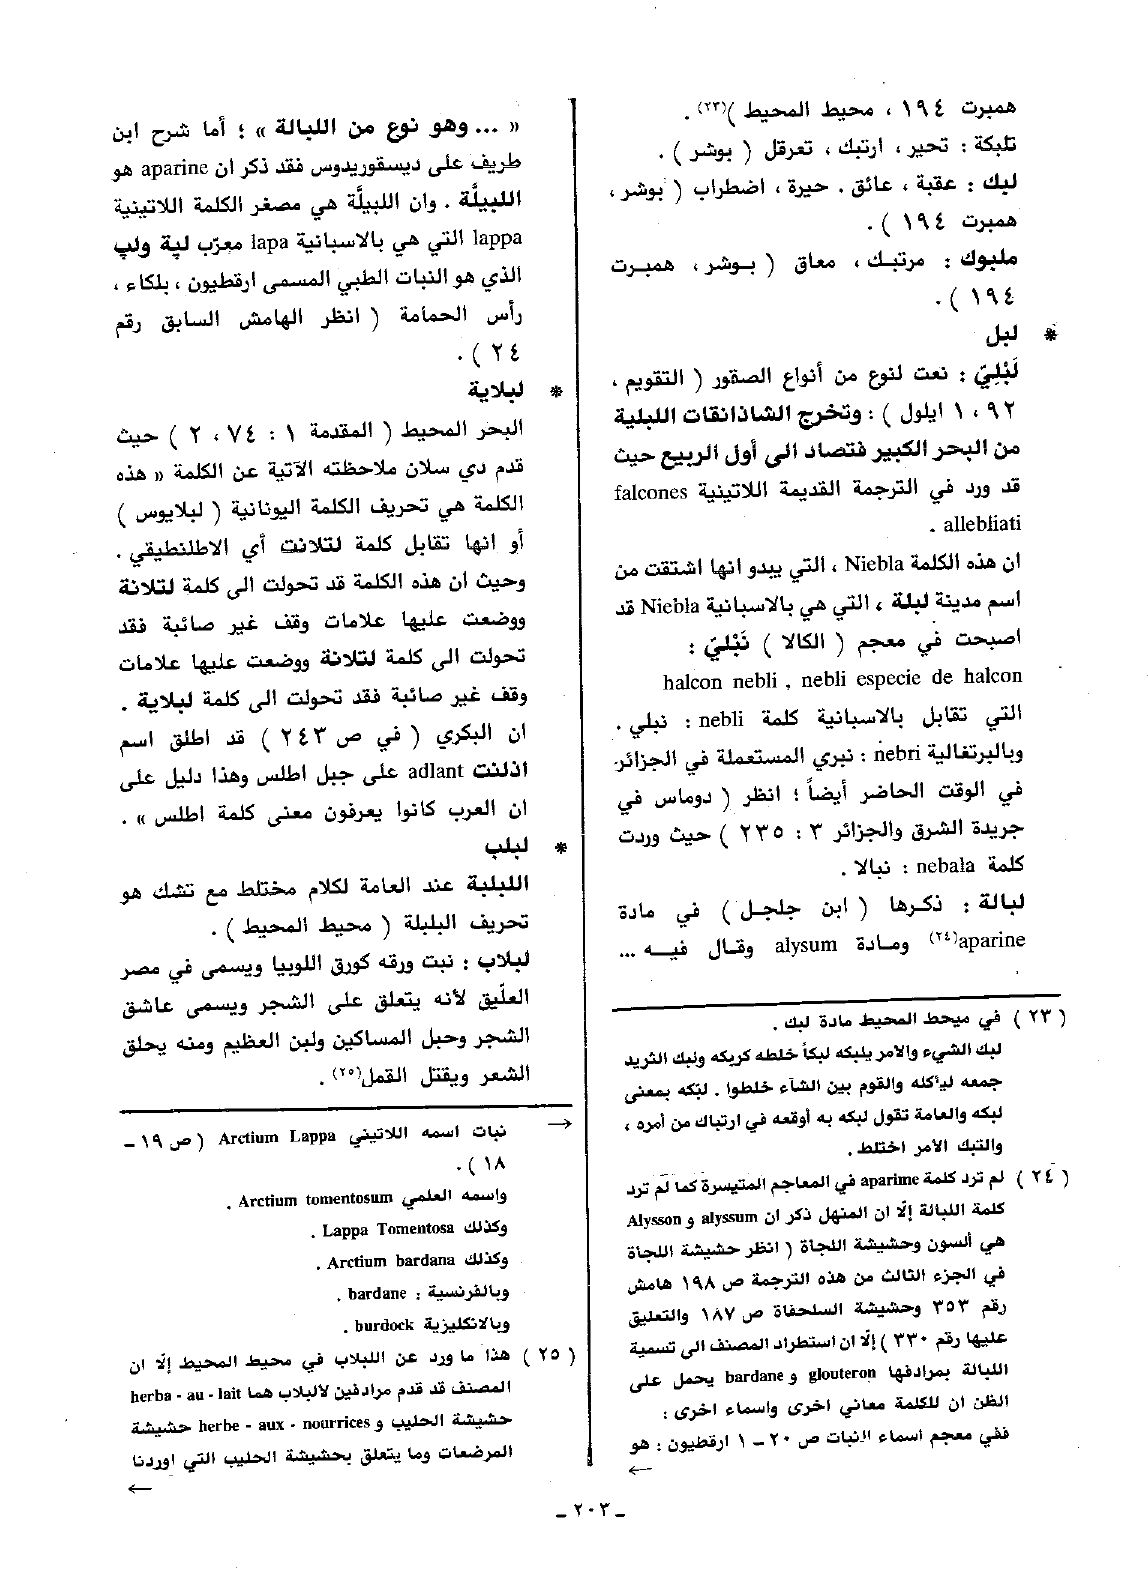 همبرت ١٩٤ ، محيط المحيط )(٢٣) .
تلبكة : تحير ، ارتبك ، تعرقل ( بوشر ) .
لبك : عقبة ، عائق . حيرة ، اضطراب ( بوشر ،
همبرت ١٩٤ ) .
ملبوك : مرتبك ، معاق ( بوشر ، همبرت
١٩٤ ) .
* لبل
لَبْلِيّ : نعت لنوع من أنواع الصقور ( التقويم ،
٩٢ ، ١ ايلول ) : وتخرج الشاذانقات اللبلية
من البحر الكبير فتصاد الى أول الربيع حيث
قد ورد في الترجمة القديمة اللاتينية falcones
allebliati .
ان هذه الكلمة Niebla ، التي يبدو انها اشتقت من
اسم مدينة لبلة ، التي هي بالاسبانية Niebla قد
اصبحت في معجم ( الكالا ) نَبْليّ :
halcon nebli , nebli especie de halcon
التي تقابل بالاسبانية كلمة nebli : نبلي .
وبالبرتغالية nebri : نبري المستعملة في الجزائر
في الوقت الحاضر أيضاً ؛ انظر ( دوماس في
جريدة الشرق والجزائر ٣ : ٢٣٥ ) حيث وردت
كلمة nebala : نبالا .
لبالة : ذكرها ( ابن جلجل ) في مادة
aparine(٢٤) ومادة alysum وقال فيه ...
( ٢٣ ) في ميحط المحيط مادة لبك .
لبك الشيء والامر يلبكه لبكاً خلطه كربكه ولبك الثريد
جمعه ليأكله والقوم بين الشاء خلطوا . لبّكه بمعنى
لبكه والعامة تقول لبكه به أوقعه في ارتباك من أمره ،
والتبك الأمر اختلط .
( ٢٤ ) لم ترد كلمة aparime في المعاجم المتيسرة كما لم ترد
كلمة اللبالة إلّا ان المنهل ذكر ان alyssum و Alysson
هي ألسون وحشيشة اللجاة ( انظر حشيشة اللجاة
في الجزء الثالث من هذه الترجمة ص ١٩٨ هامش
رقم ٣٥٣ وحشيشة السلحفاة ص ١٨٧ والتعليق
عليها رقم ٣٣٠ ) إلّا ان استطراد المصنف الى تسمية
اللبالة بمرادفها glouteron و bardane يحمل على
الظن ان للكلمة معاني اخرى واسماء اخرى :
ففي معجم اسماء النبات ص ٢٠ – ١ ارقطيون : هو
←
« ... وهو نوع من اللبالة » ؛ أما شرح ابن
طريف على ديسقوريدوس فقد ذكر ان aparine هو
اللبيلَّة . وان اللبيلَّة هي مصغر الكلمة اللاتينية
lappa التي هي بالاسبانية lapa معرّب لپة ولپ
الذي هو النبات الطبي المسمى ارقطيون ، بلكاء ،
رأس الحمامة ( انظر الهامش السابق رقم
٢٤ ) .
* لبلاية
البحر المحيط ( المقدمة ١ : ٧٤ ، ٢ ) حيث
قدم دي سلان ملاحظته الآتية عن الكلمة « هذه
الكلمة هي تحريف الكلمة اليونانية ( لبلايوس )
أو انها تقابل كلمة لتلانت أي الاطلنطيقي .
وحيث ان هذه الكلمة قد تحولت الى كلمة لتلانة
ووضعت عليها علامات وقف غير صائبة فقد
تحولت الى كلمة لتلانة ووضعت عليها علامات
وقف غير صائبة فقد تحولت الى كلمة لبلاية .
ان البكري ( في ص ٢٤٣ ) قد اطلق اسم
اذلنت adlant على جبل اطلس وهذا دليل على
ان العرب كانوا يعرفون معنى كلمة اطلس » .
* لبلب
اللبلبة عند العامة لكلام مختلط مع تشك هو
تحريف البلبلة ( محيط المحيط ) .
لبلاب : نبت ورقه كورق اللوبيا ويسمى في مصر
العلّيق لأنه يتعلق على الشجر ويسمى عاشق
الشجر وحبل المساكين ولبن العظيم ومنه يحلق
الشعر ويقتل القمل(٢٥) .
→ نبات اسمه اللاتيني Arctium Lappa ( ص ١٩ –
١٨ ) .
واسمه العلمي Arctium tomentosum .
وكذلك Lappa Tomentosa .
وكذلك Arctium bardana .
وبالفرنسية : bardane .
وبالانكليزية burdock .
( ٢٥ ) هذا ما ورد عن اللبلاب في محيط المحيط إلّا ان
المصنف قد قدم مرادفين لألبلاب هما herba - au - lait
حشيشة الحليب و herbe - aux - nourrices حشيشة
المرضعات وما يتعلق بحشيشة الحليب التي اوردنا
←
ـ ٢٠٣ ـ